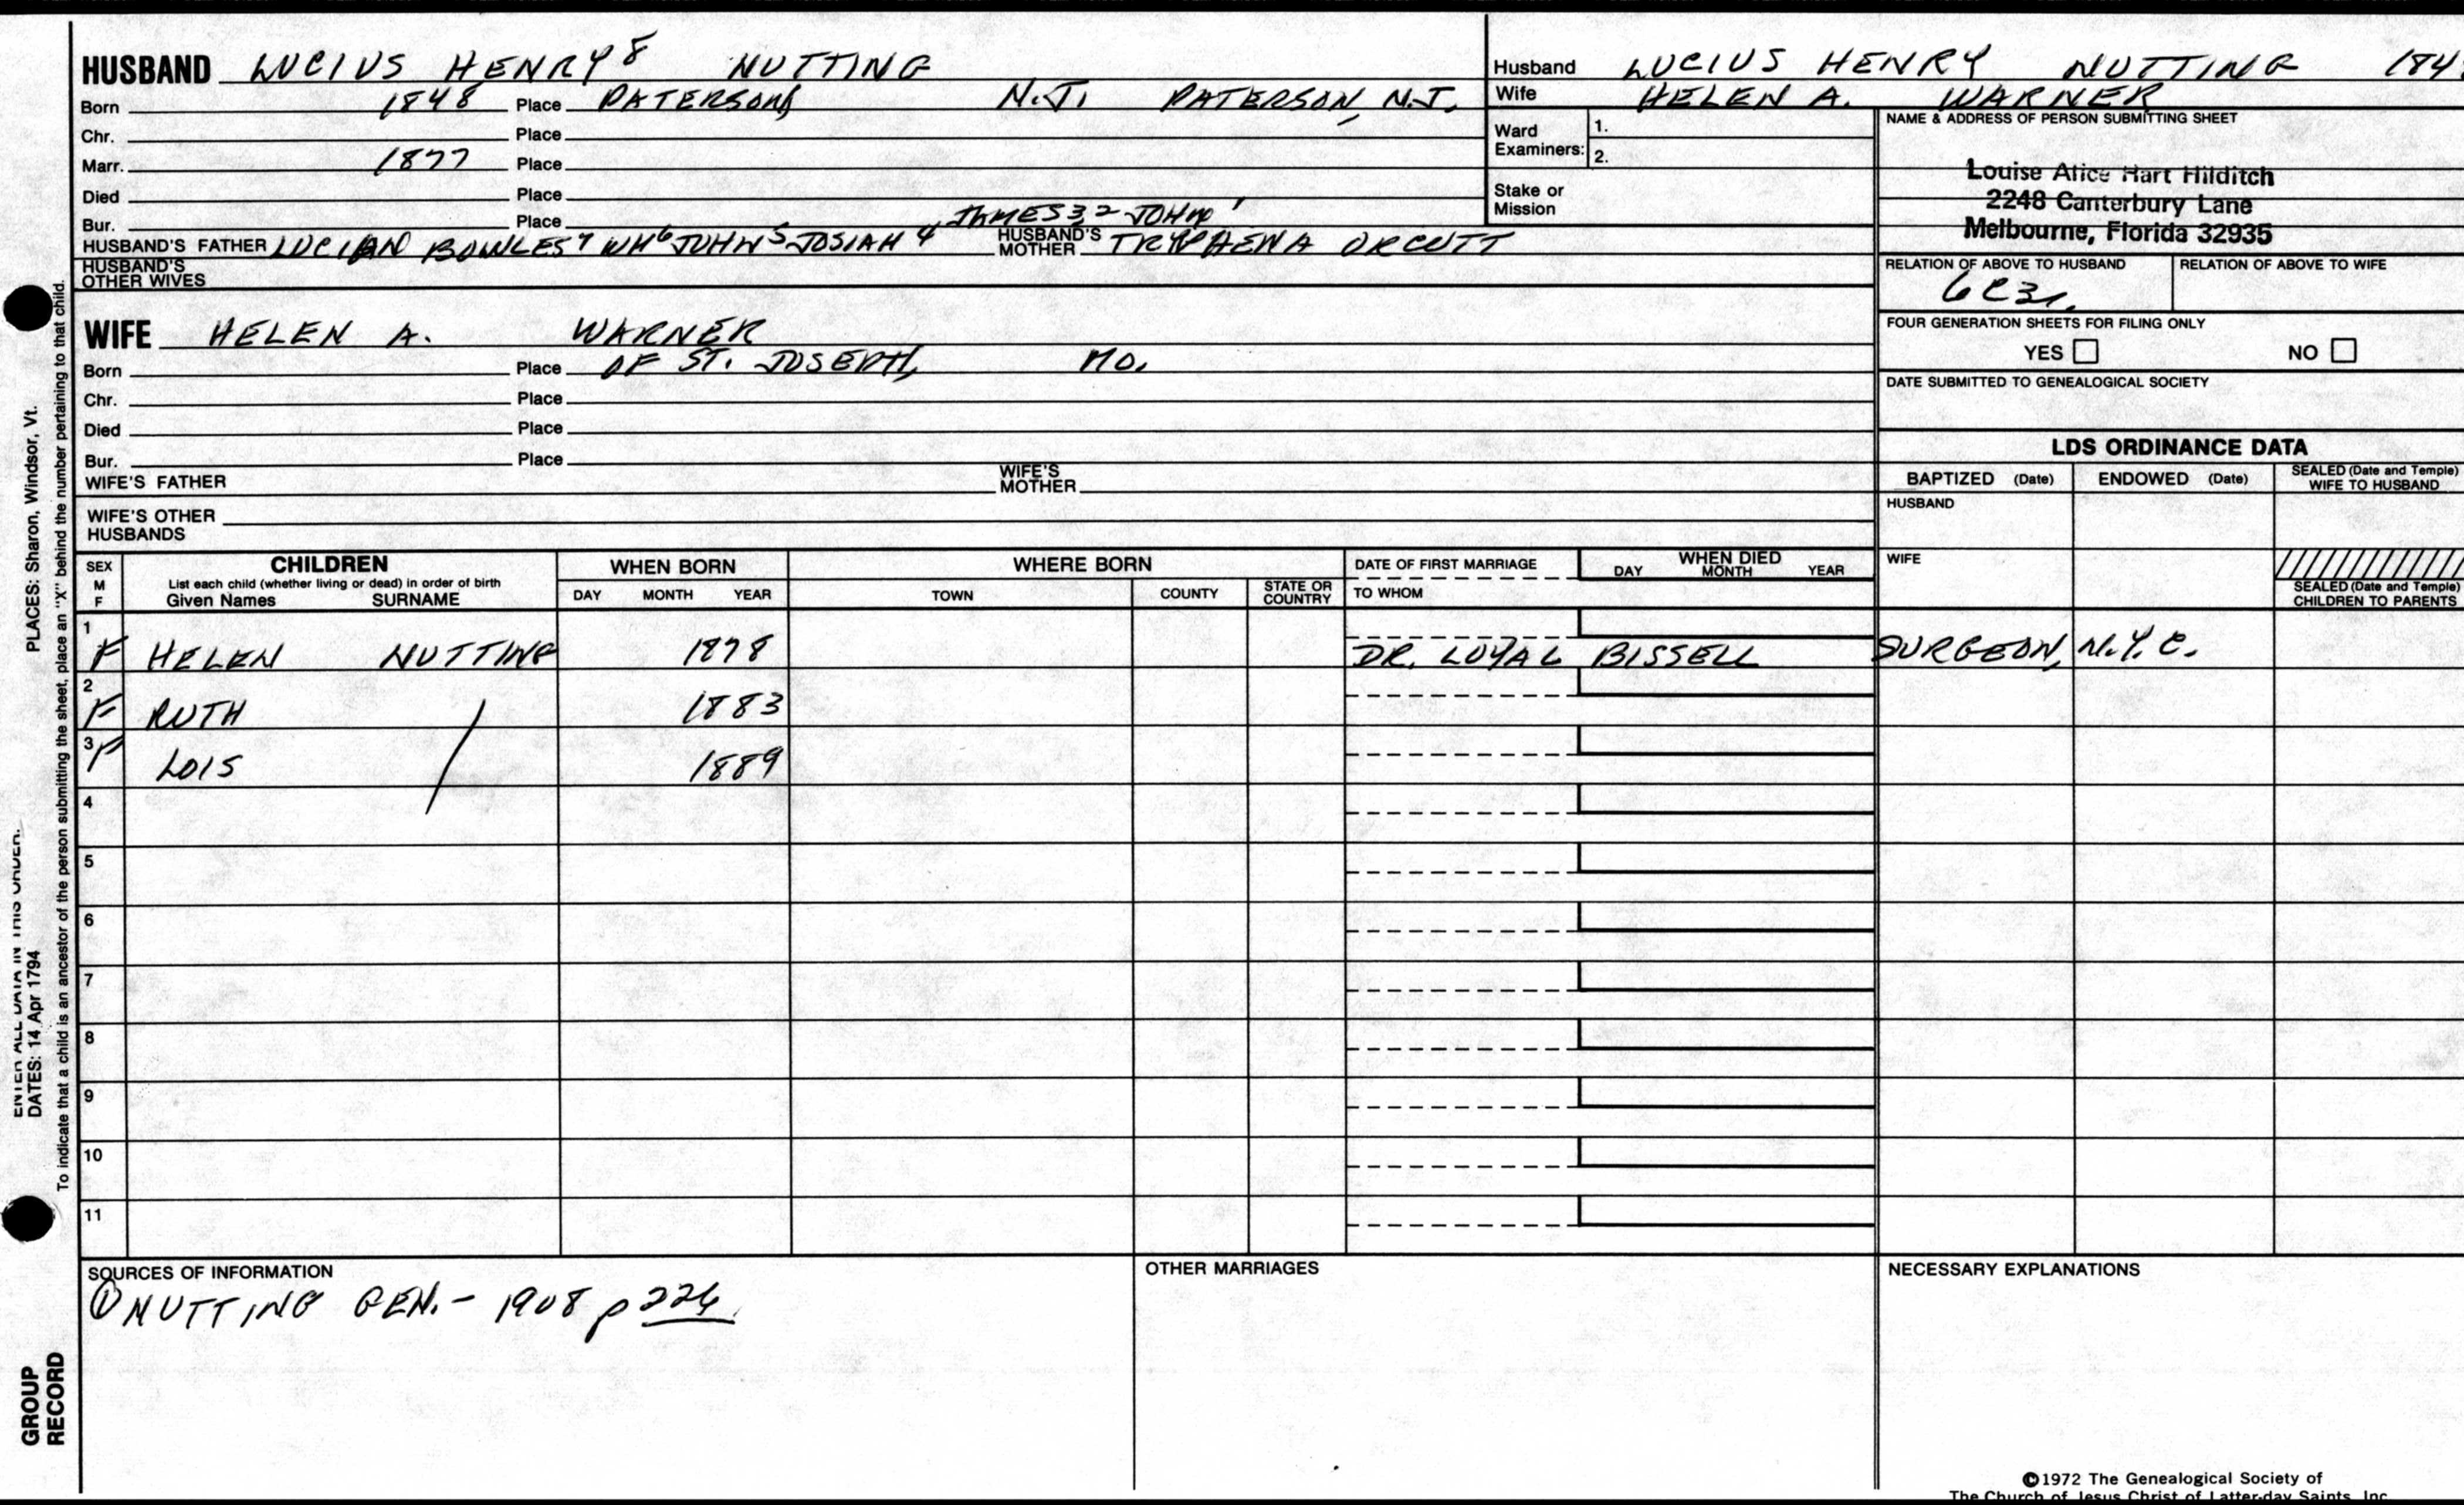 HUSBAND LUCIUS HENRY⁸ NUTTING
Born 1848 Place PATERSON N.J. PATERSON, N.J.
Chr. Place
Marr. 1877 Place
Died Place
Bur. Place JAMES 3,2 JOHN 1
HUSBAND'S FATHER LUCIAN BOWLES⁷ WM⁶ JOHN⁵ JOSIAH⁴ HUSBAND'S MOTHER TRYPHENA ORCUTT
HUSBAND'S OTHER WIVES
WIFE HELEN A. WARNER
Born Place OF ST. JOSEPH, MO.
Chr. Place
Died Place
Bur. Place
WIFE'S FATHER WIFE'S MOTHER
WIFE'S OTHER HUSBANDS
Husband LUCIUS HENRY NUTTING 184
Wife HELEN A. WARNER
Ward Examiners: 1.
2.
Stake or Mission
NAME & ADDRESS OF PERSON SUBMITTING SHEET
Louise Alice Hart Hilditch
2248 Canterbury Lane
Melbourne, Florida 32935
RELATION OF ABOVE TO HUSBAND RELATION OF ABOVE TO WIFE
6C3r.
FOUR GENERATION SHEETS FOR FILING ONLY
YES NO
DATE SUBMITTED TO GENEALOGICAL SOCIETY
LDS ORDINANCE DATA
BAPTIZED (Date) ENDOWED (Date) SEALED (Date and Temple) WIFE TO HUSBAND
HUSBAND
WIFE
SEALED (Date and Temple) CHILDREN TO PARENTS
SEX M F CHILDREN WHEN BORN WHERE BORN DATE OF FIRST MARRIAGE WHEN DIED
List each child (whether living or dead) in order of birth
Given Names SURNAME DAY MONTH YEAR TOWN COUNTY STATE OR COUNTRY TO WHOM DAY MONTH YEAR
1 F HELEN NUTTING 1878 DR. LOYAL BISSELL SURGEON, N.Y.C.
2 F RUTH / 1883
3 F LOIS 1889
4
5
6
7
8
9
10
11
SOURCES OF INFORMATION
① NUTTING GEN. - 1908 p 226
OTHER MARRIAGES
NECESSARY EXPLANATIONS
©1972 The Genealogical Society of
The Church of Jesus Christ of Latter-day Saints, Inc.
ENTER ALL DATA IN THIS ORDER:
DATES: 14 Apr 1794 PLACES: Sharon, Windsor, Vt.
To indicate that a child is an ancestor of the person submitting the sheet, place an "X" behind the number pertaining to that child.
GROUP
RECORD